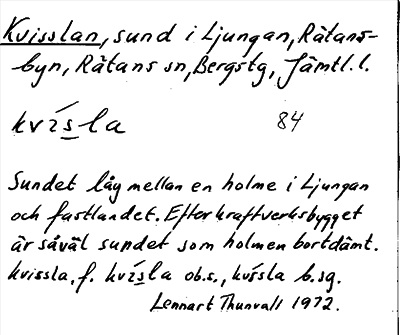 Kvisslan, sund i Ljungan, Rätans-
byn, Rätans sn, Bergstg, Jämtl.l.
kvísla 84
Sundet låg mellan en holme i Ljungan
och fastlandet. Efter kraftverksbygget
är såväl sundet som holmen bortdämt.
kvissla, f. kvísla ob.s., kvíssla b.sg.
Lennart Thunvall 1972.